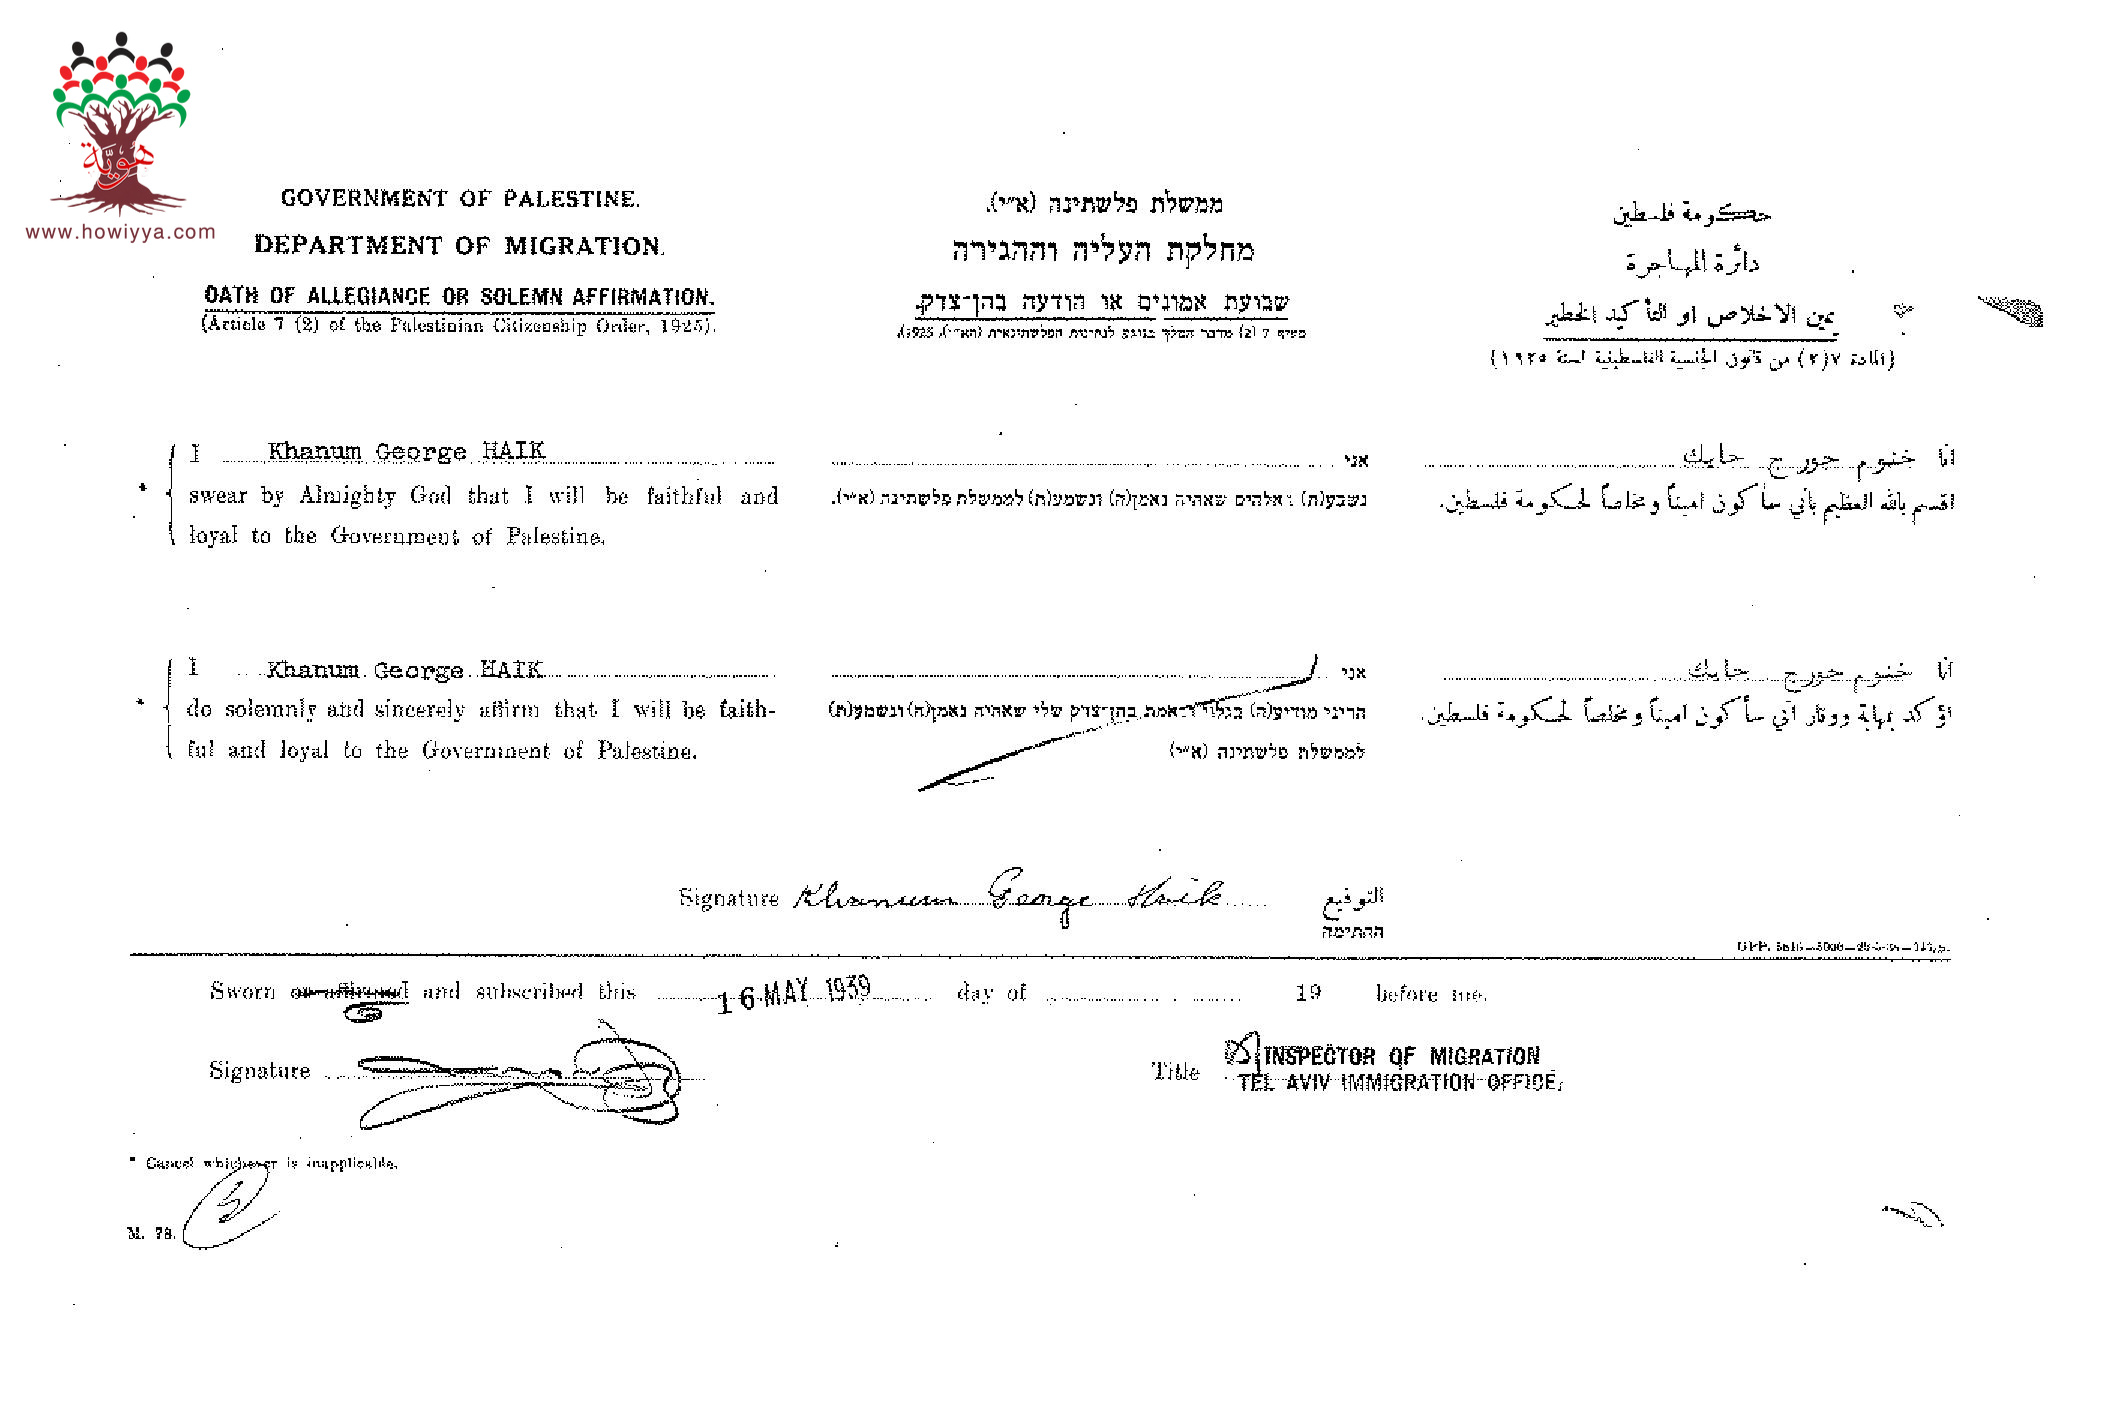 هويّة
www.howiyya.com
GOVERNMENT OF PALESTINE.
DEPARTMENT OF MIGRATION.
OATH OF ALLEGIANCE OR SOLEMN AFFIRMATION.
(Article 7 (2) of the Palestinian Citizenship Order, 1925).
ממשלת פלשתינה (א״י).
מחלקת העליה וההגירה
שבועת אמונים או הודעה בהן־צדק.
סעיף 7 (2) מדבר המלך בנוגע לנתינות הפלשתינאית (הא״י), 1925).
حكومة فلسطين
دائرة المهاجرة
يمين الاخلاص او التأكيد الخطير
(المادة ٧(٢) من قانون الجنسية الفلسطينية لسنة ١٩٢٥)
* I Khanum George HAIK
swear by Almighty God that I will be faithful and
loyal to the Government of Palestine.
אני
נשבע(ת) באלהים שאהיה נאמן(ה) ונשמע(ת) לממשלת פלשתינה (א״י).
انا خنوم جورج حايك
اقسم بالله العظيم بأني سأكون اميناً ومخلصاً لحكومة فلسطين.
* I Khanum George HAIK
do solemnly and sincerely affirm that I will be faith-
ful and loyal to the Government of Palestine.
אני
הריני מודיע(ה) בגלוי ובאמת בהן־צדק שלי שאהיה נאמן(ה) ונשמע(ת)
לממשלת פלשתינה (א״י)
انا خنوم جورج حايك
اؤكد بمهابة ووقار اني سأكون اميناً ومخلصاً لحكومة فلسطين.
Signature Khanum George Haik التوقيع
החתימה
Sworn or affirmed and subscribed this 16 MAY 1939 day of 19 before me.
Signature
Title INSPECTOR OF MIGRATION
TEL AVIV IMMIGRATION OFFICE.
* Cancel whichever is inapplicable.
M. 78.